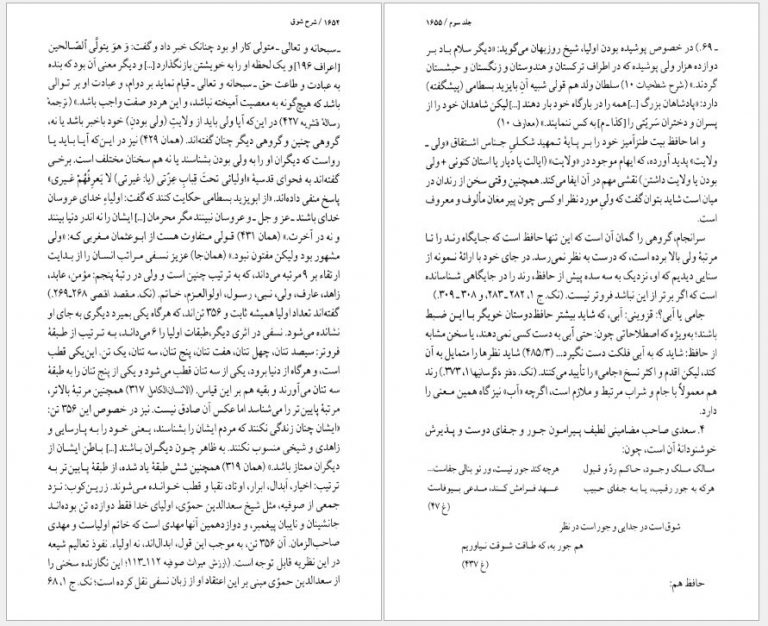 ۱۶۵۴ / شرح شوق
ـ سبحانه و تعالی ـ متولی کار او بود چنانک خبر داد و گفت: وَ هوَ یتولَّی الصّالحین
[اعراف ۱۹۶] و یک لحظه او را به خویشتن بازنگذارد[...] و دیگر معنی آن بود که بنده
به عبادت و طاعت حق ـ سبحانه و تعالی ـ قیام نماید بر دوام، و عبادت او بر توالی
باشد که هیچ‌گونه به معصیت آمیخته نباشد، و این هر دو صفت واجب باشد.» (ترجمهٔ
رسالهٔ قشریه ۴۲۷) در این‌که آیا ولی باید از ولایتِ (ولی بودنِ) خود باخبر باشد یا نه،
گروهی چنین و گروهی دیگر چنان گفته‌اند. (همان ۴۲۹) نیز در این‌که آیا باید یا
رواست که دیگران او را به ولی بودن بشناسند یا نه هم سخنان مختلف است. برخی
گفته‌اند به فحوای قدسیهٔ «اولیائی تحتَ قِبابِ عِزّتی (یا: غیرتی) لا یَعرِفُهُمْ غَیری»
پاسخ منفی داده‌اند. «از ابویزید بسطامی حکایت کنند که گفت: اولیاءِ خدای عروسان
خدای باشند ـ عز و جل ـ و عروسان نبینند مگر محرمان [...] ایشان را نه اندر دنیا بینند
و نه در آخرت.» (همان ۴۳۱) قولی متفاوت هست از ابوعثمان مغربی که: «ولی
مشهور بود ولیکن مفتون نبود.» (همان‌جا) عزیز نسفی مراتب انسان را از بدایت
ارتقاء بر ۹ مرتبه می‌داند، که به ترتیب چنین است و ولی در رتبهٔ پنجم: مؤمن، عابد،
زاهد، عارف، ولی، نبی، رسول، اولوالعزم، خاتم. (نک. مقصد اقصی ۲۶۸ـ۲۶۹.)
گفته‌اند تعداد اولیا همیشه ثابت و ۳۵۶ تن‌اند، که هرگاه یکی بمیرد دیگری به جای او
نشانده می‌شود. نسفی در اثری دیگر،طبقات اولیا را ۶ می‌داند، به ترتیب از طبقهٔ
فروتر: سیصد تنان، چهل تنان، هفت تنان، پنج تنان، سه تنان، یک تن. این‌یکی قطب
است، و هرگاه از دنیا برود، یکی از سه تنان قطب می‌شود و یکی از پنج تنان را به طبقهٔ
سه تنان می‌آورند و بقیه هم بر این قیاس. (الانسان‌الکامل ۳۱۷) همچنین مرتبهٔ بالاتر،
مرتبهٔ پایین‌تر را می‌شناسد اما عکس آن صادق نیست. نیز در خصوص این ۳۵۶ تن:
«ایشان چنان زندگی نکنند که مردم ایشان را بشناسند، یعنی خود را به پارسایی و
زاهدی و شیخی منسوب نکنند. به ظاهر چون دیگران باشند [...] باطن ایشان از
دیگران ممتاز باشد.» (همان ۳۱۹) همچنین شش طبقهٔ یاد شده، از طبقهٔ پایین‌تر به
ترتیب: اخیار، اَبدال، ابرار، اوتاد، نقبا و قطب خوانده می‌شوند. زرین‌کوب: نزد
جمعی از صوفیه، مثل شیخ سعدالدین حموّی، اولیای خدا فقط دوازده تن بوده‌اند
جانشینان و نایبان پیغمبر، و دوازدهمین آنها مهدی است که خاتم اولیاست و مهدی
صاحب‌الزمان. آن ۳۵۶ تن، به موجب این قول، ابدال‌اند، نه اولیاء. نفوذ تعالیم شیعه
در این نظریه قابل توجه است. (ارزش میراث صوفیه ۱۱۲ـ۱۱۳؛ این نگارنده سخنی را
از سعدالدین حموّی مبنی بر این اعتقاد او از زبان نسفی نقل کرده است؛ نک. ج ۱، ۶۸
جلد سوم / ۱۶۵۵
ـ ۶۹.) در خصوص پوشیده بودن اولیا، شیخ روزبهان می‌گوید: «دیگر سلام باد بر
دوازده هزار ولی پوشیده که در اطراف ترکستان و هندوستان و زنگستان و حبشستان
گردند.» (شرح شطحیات ۱۰) سلطان ولد هم قولی شبیه آن بایزید بسطامی (پیشگفته)
دارد: «پادشاهان بزرگ [...] همه را در بارگاه خود بار دهند [...] لیکن شاهدان خود را از
پسران و دختران سَریّتی را [کذا ـ م] به کس ننمایند.» (معارف ۱۰)
و اما حافظ بیت طنزآمیز خود را بر پایهٔ تمهید شکلیِ جناس اشتقاق «ولی ـ
ولایت» پدید آورده، که ایهام موجود در «ولایت» (ایالت یا دیار یا استان کنونی + ولی
بودن یا ولایت داشتن) نقشی مهم در آن ایفا می‌کند. همچنین وقتی سخن از رندان در
میان است شاید بتوان گفت که ولیِ مورد نظر او کسی چون پیر مغان مألوف و معروف
است.
سرانجام، گروهی را گمان آن است که این تنها حافظ است که جایگاه رند را تا
مرتبهٔ ولی بالا برده است، که درست به نظر نمی‌رسد. در جای خود با ارائهٔ نمونه از
سنایی دیدیم که او، نزدیک به سه سده پیش از حافظ، رند را در جایگاهی شناسانده
است که اگر برتر از این نباشد فروتر نیست. (نک. ج ۱، ۲۸۲ـ۲۸۳، و ۳۰۸ـ۳۰۹.)
جامی یا آبی؟: قزوینی: آبی، که شاید بیشتر حافظ‌دوستان خوبگر با این ضبط
باشند؛ به‌ویژه که اصطلاحاتی چون: حتی آبی به دست کسی نمی‌دهند، یا سخن مشابه
از حافظ: شاید که به آبی فلکت دست نگیرد... (۴۸۵/۳) شاید نظرها را متمایل به آن
کند، لیکن اقدم و اکثر نسخ «جامی» را تأیید می‌کنند. (نک. دفتر دگرسانیها ۱، ۳۷۳.) رند
هم معمولاً با جام و شراب مرتبط و ملازم است، اگرچه «آب» نیز گاه همین معنی را
دارد.
۴. سعدی صاحب مضامینی لطیف پیرامون جور و جفای دوست و پذیرش
خشنودانهٔ آن است، چون:
مالک ملک وجود، حاکم ردّ و قبول هرچه کند جور نیست، ور تو بنالی جفاست...
هرکه به جور رقیب، یا به جفای حبیب عهد فرامش کند، مدعی بی‌وفاست
(غ ۴۷)
شوق است در جدایی و جور است در نظر
هم جور به، که طاقت شوقت نیاوریم
(غ ۴۳۷)
حافظ هم: